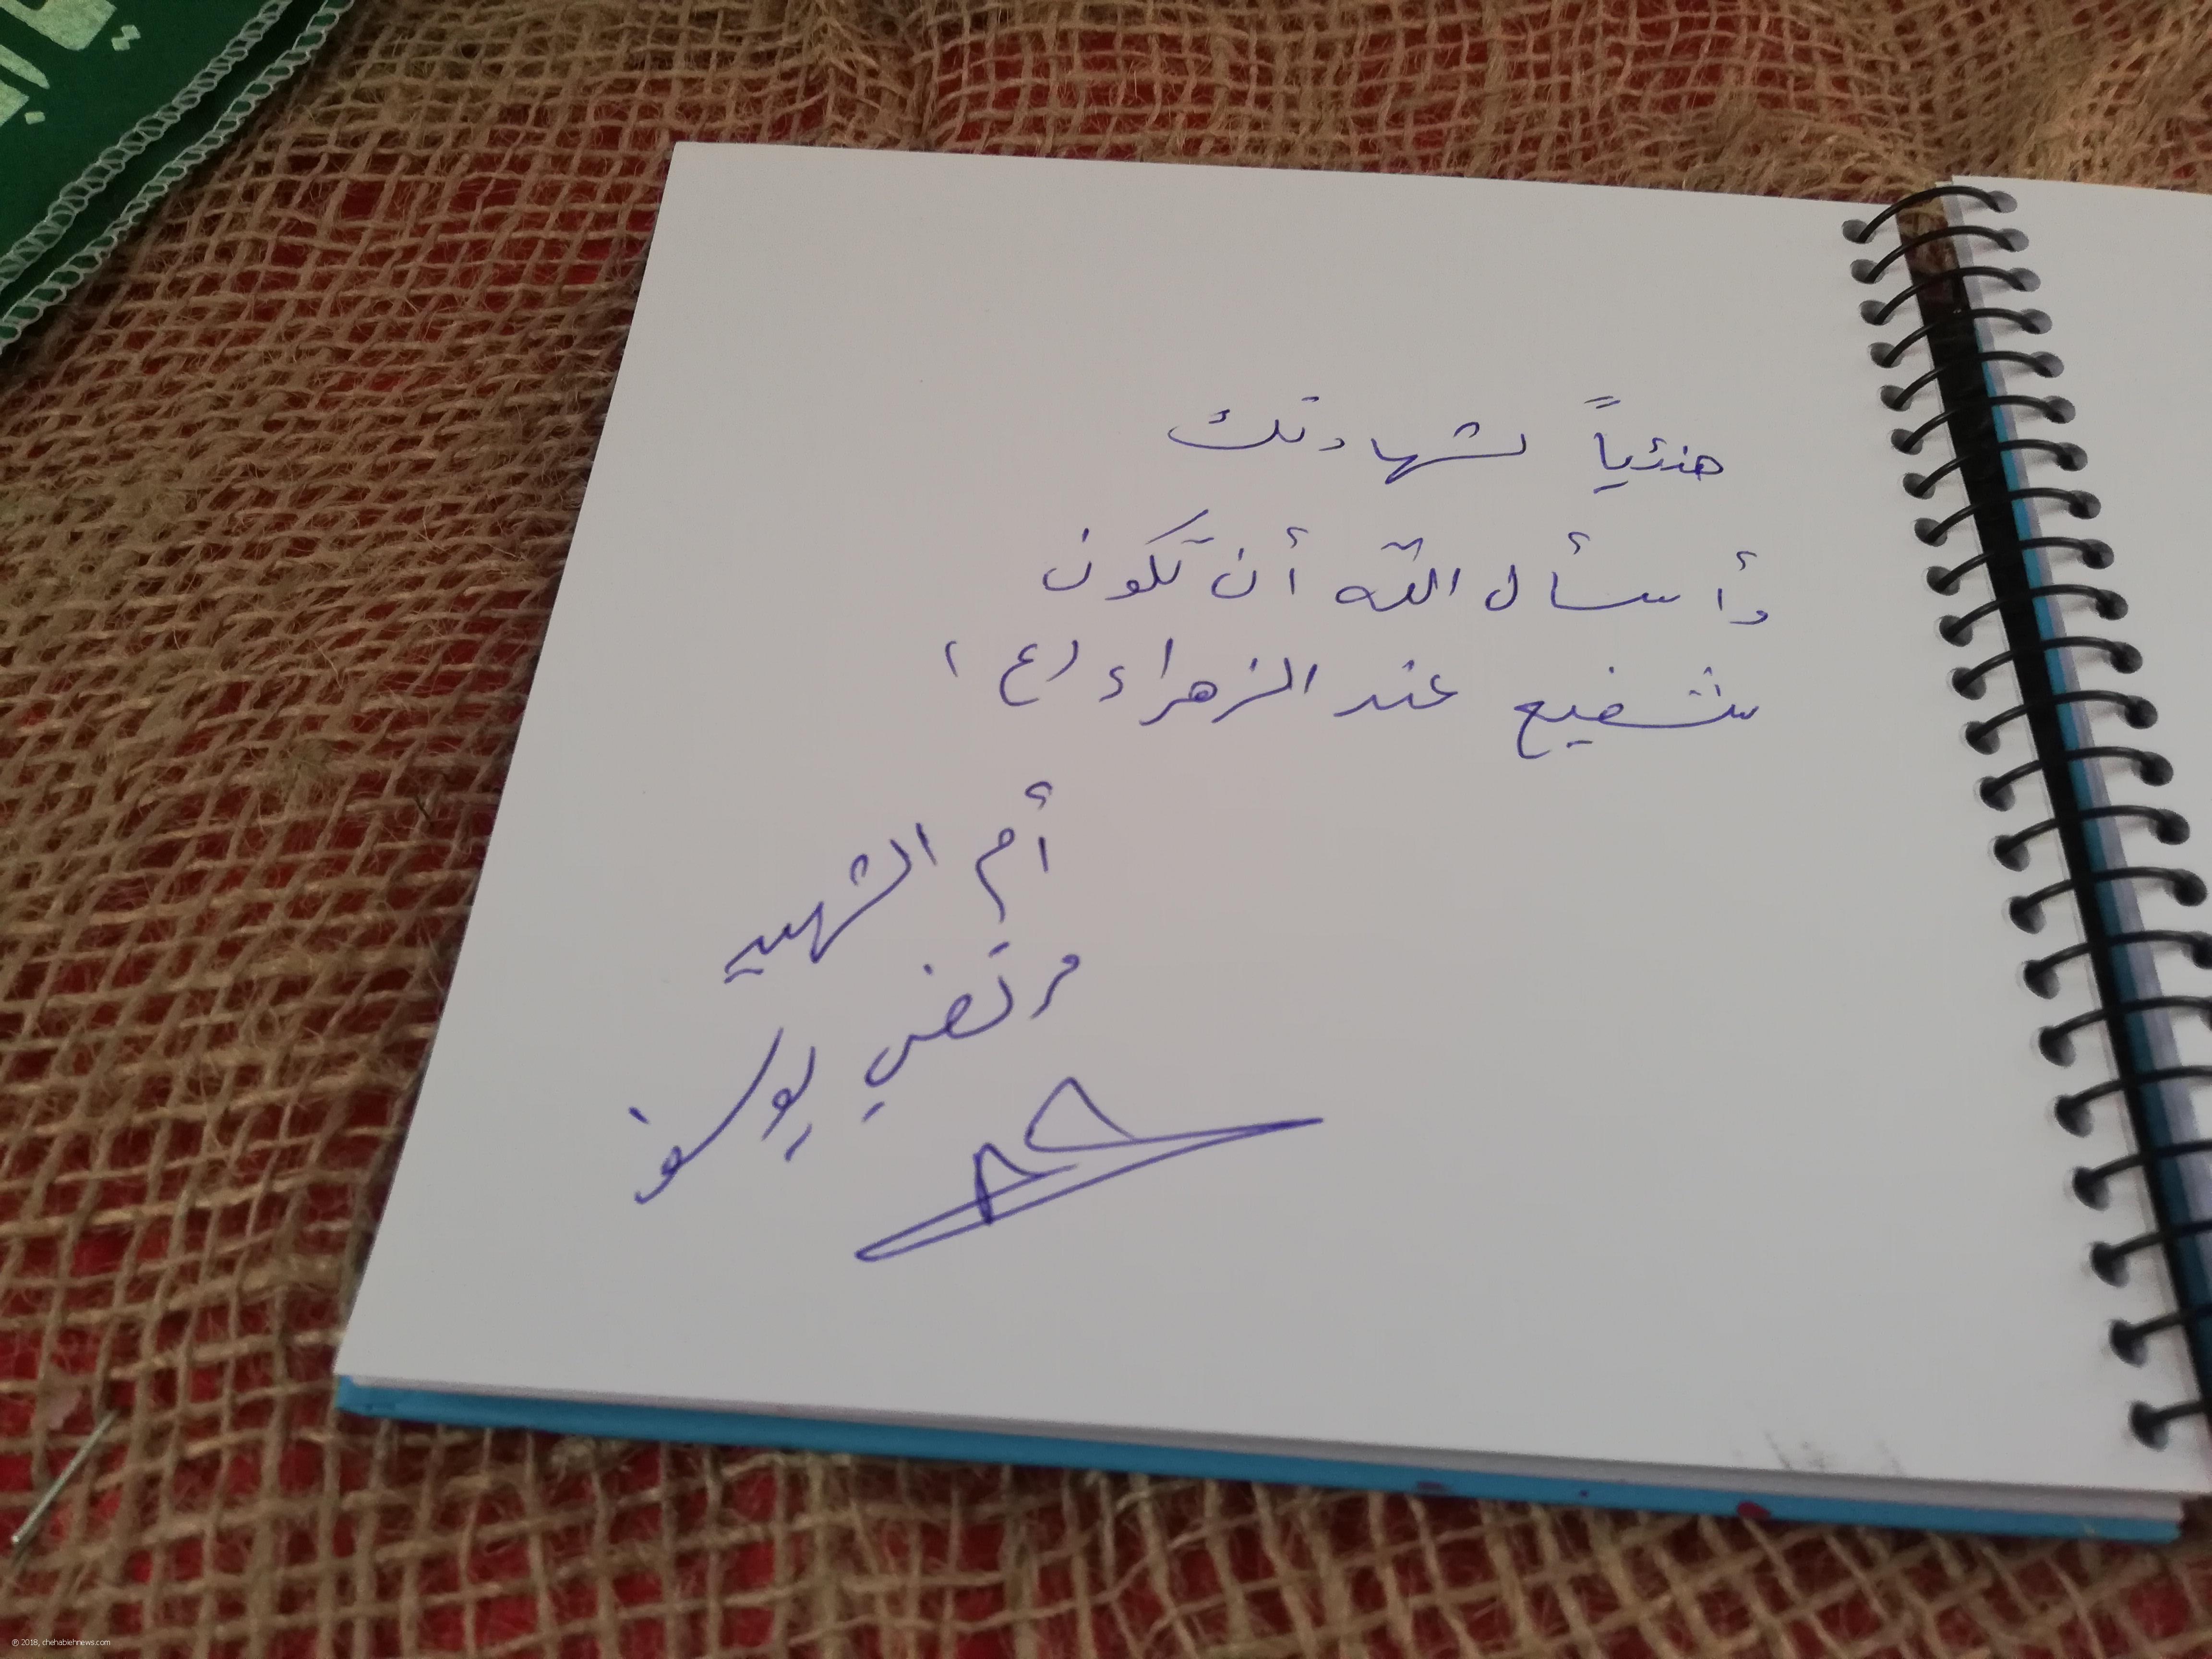 هنئياً لشهادتك
وأسأل الله أن تكون
شفيع عند الزهراء (ع)
أم الشهيد
مرتضى يوسف
® 2018, chehabiehnews.com